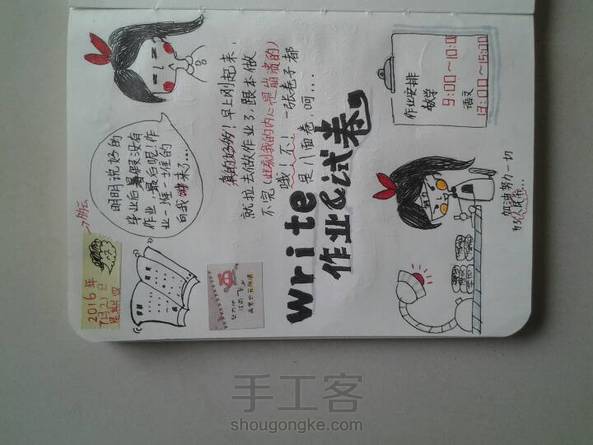 2016年
7月21日
星期四
明明说好的
毕业后暑假没有
作业,最后呢!作
业一堆一堆的
向我砸来…
真的好的!早上刚起来,
就拉去做作业了,跟本做
不完(此刻我的内心是崩溃的)
哦!不!一张卷子都
是八面卷,呵…
Write
作业&试卷
作业安排
数学
9:00~10:00
语文
13:00~15:00
加油努力一切
手工客
shougongke.com